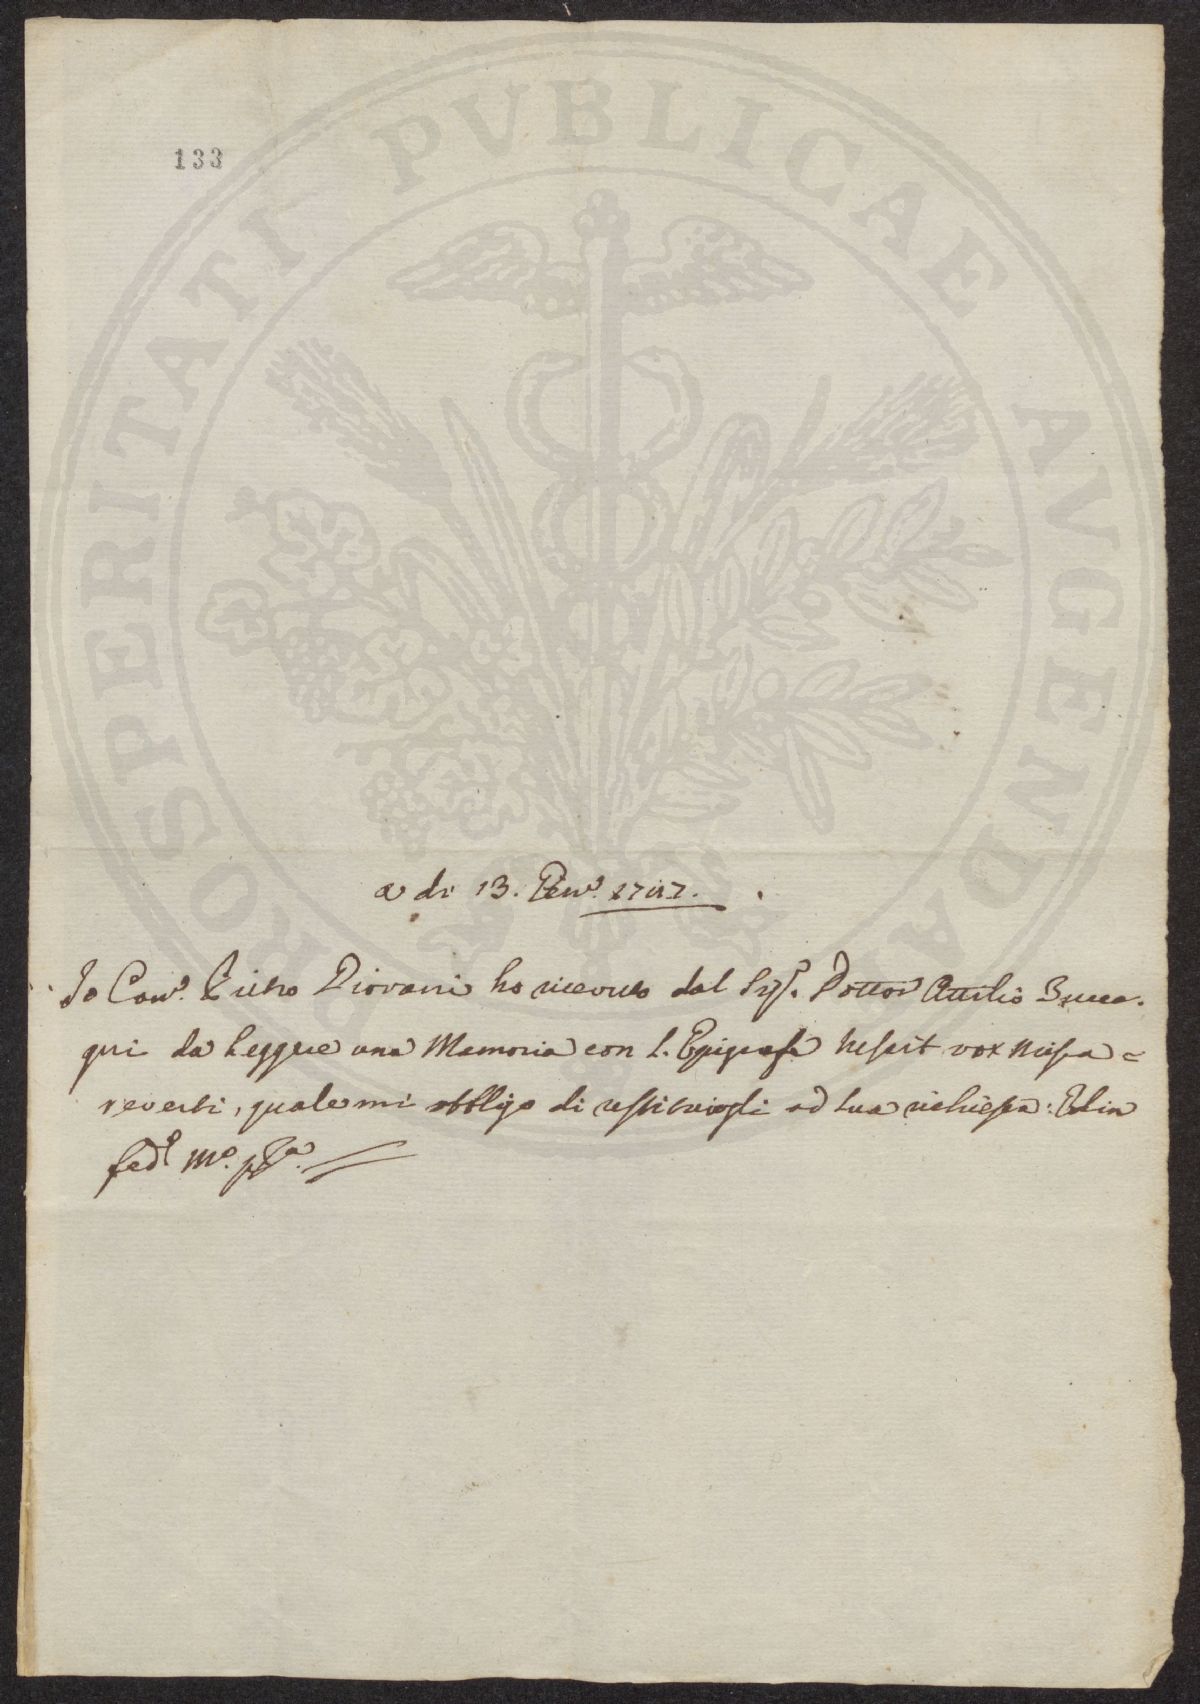 133
PROSPERITATI PVBLICAE AVGENDAE
a di 13. Gen.o
Io Con.e Pietro Giovanni ho ricevuto dal Sig.r Dottor Attilio Zucca=
gni da Leggere una Memoria con l. Epigrafe nescit vox missa =
reverti, quale mi obbligo di restituirgli ad sua richiesta: Ed in
fede M.o pp.a